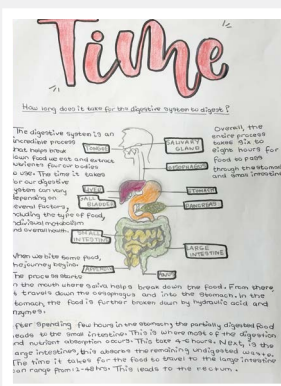 Time
How long does it take for the digestive system to digest?
The digestive system is an
incredible process
that helps break
down food we eat and extract
nutrients for our bodies
to use. The time it takes
for our digestive
system can vary
depending on
several factors,
including the type of food,
individual metabolism
and overall health.
Overall, the
entire process
takes six to
eight hours for
food to pass
through the stomach
and small intestine
TONGUE
SALIVARY
GLAND
ESOPHAGUS
LIVER
GALL
BLADDER
STOMACH
PANCREAS
SMALL
INTESTINE
LARGE
INTESTINE
APPENDIX
ANUS
When we bite some food,
the journey begins.
The process starts
in the mouth where saliva helps break down the food. From there,
it travels down the oesophagus and into the stomach. In the
stomach, the food is further broken down by hydraulic acid and
enzymes.
After spending few hours in the stomach, the partially digested food
leads to the small intestine. This is where most of the digestion
and nutrient absorption occurs. This take 4-6 hours. Next, is the
large intestine, this absorbs the remaining undigested waste.
The time it takes for the food to travel to the large intestine
can range from 12-48hrs. This leads to the rectum.